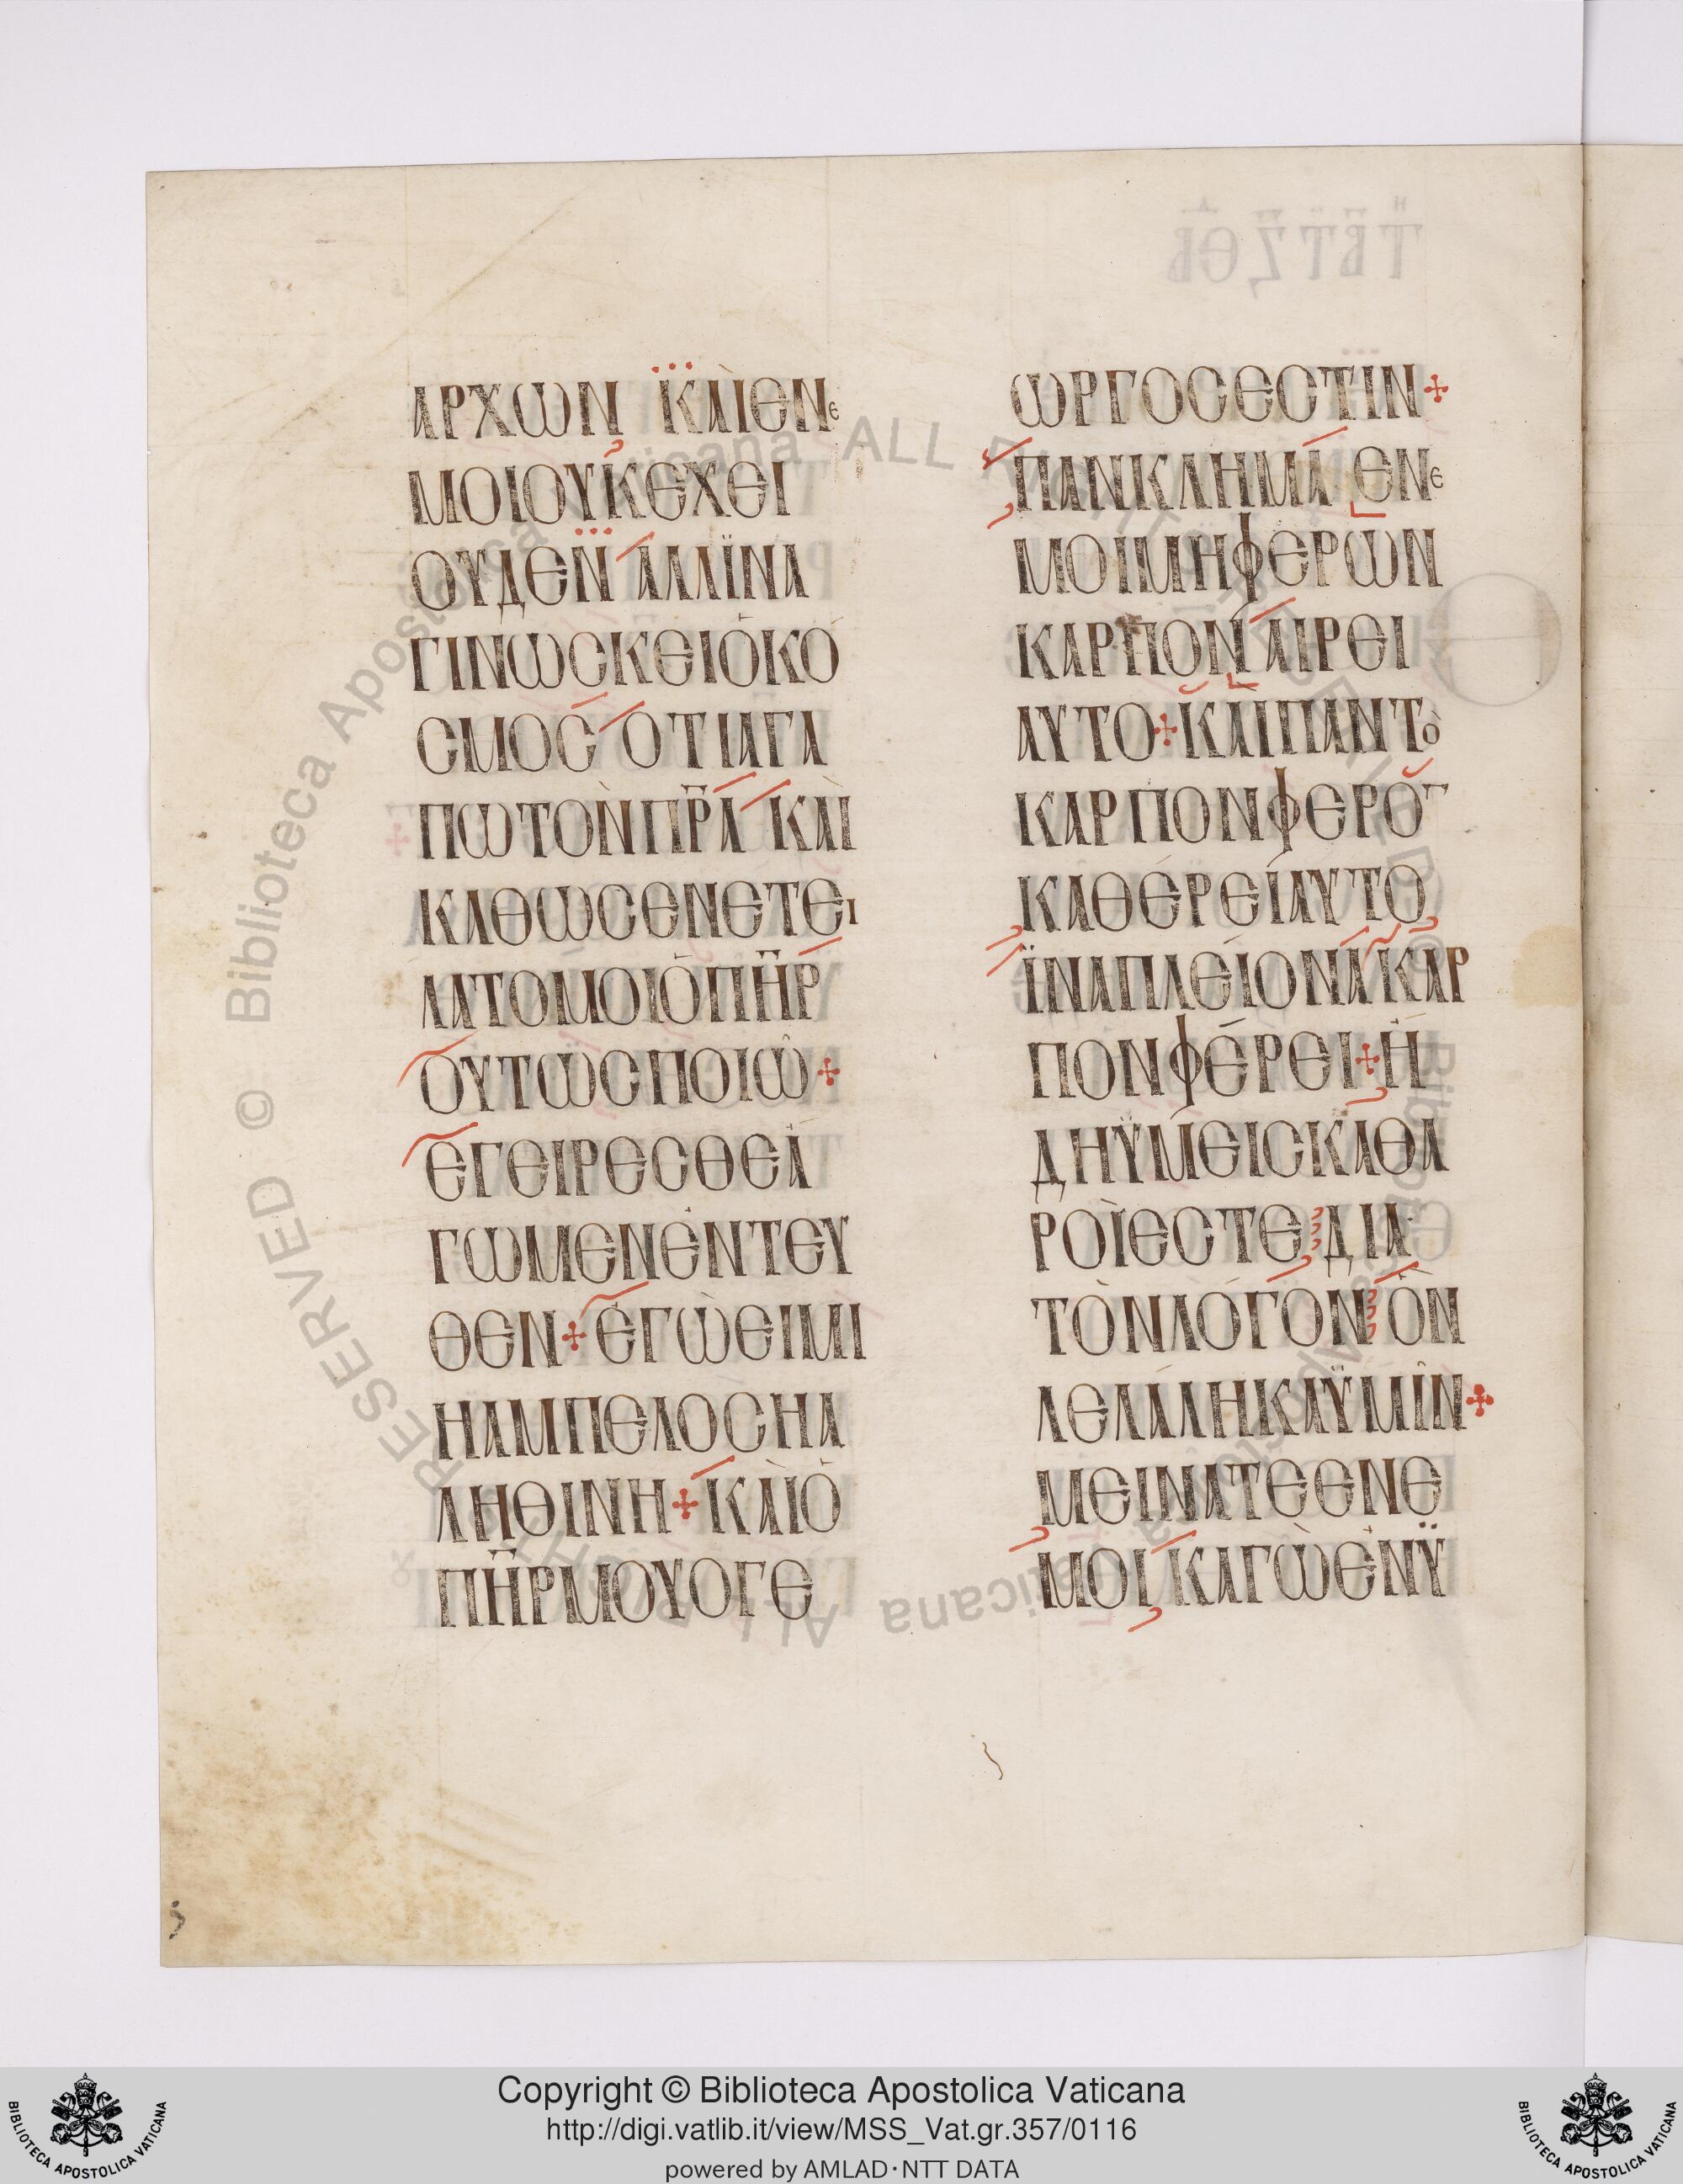 ΑΡΧΩΝ ΚΑῚΕΝΕ
ΜΟΙΟΥΚΕΧΕΙ
ΟΥΔΕΝ ΑΛΛΪΝΑ
ΓΙΝΩΣΚΕΙΟΚΟ
ΣΜΟΣ ΟΤΙΑΓΑ
ΠΩΤΟΝΠΡΑ ΚΑΙ
ΚΑΘΩΣΕΝΕΤΕΙ
ΛΑΤΟΜΟΙΟΠΗΡ
ΟΥΤΩΣΠΟΙΩ+
ΕΓΕΙΡΕΣΘΕΑ
ΓΩΜΕΝΕΝΤΕΥ
ΘΕΝ+ΕΓΩΕΙΜΙ
ΗΑΜΠΕΛΟΣΗΑ
ΛΗΘΙΝΗ+ΚΑΙΟ
ΠΗΡΜΟΥΟΓΕ
ΩΡΓΟΣΕΣΤΙΝ+
ΠΑΝΚΛΗΜΑ ΕΝΕ
ΜΟΙΜΗΦΕΡΩΝ
ΚΑΡΠΟΝ ΑΙΡΕΙ
ΑΥΤΟ+ΚΑΙΠΑΝΤΟ
ΚΑΡΠΟΝΦΕΡΟΤ
ΚΑΘΕΡΕΙΑΥΤΟ
ΪΝΑΠΛΕΙΟΝΑΚΑΡ
ΠΟΝΦΕΡΕΙ+Η
ΔΗΫΜΕΙΣΚΑΘΑ
ΡΟΙΕΣΤΕ ΔΙΑ
ΤΟΝΛΟΓΟΝ ΟΝ
ΛΕΛΑΛΗΚΑΫΜΙΝ+
ΜΕΙΝΑΤΕΕΝΕ
ΜΟΙ ΚΑΓΩΕΝΫ
Copyright © Biblioteca Apostolica Vaticana
http://digi.vatlib.it/view/MSS_Vat.gr.357/0116
powered by AMLAD·NTT DATA
BIBLIOTECA APOSTOLICA VATICANA
BIBLIOTECA APOSTOLICA VATICANA